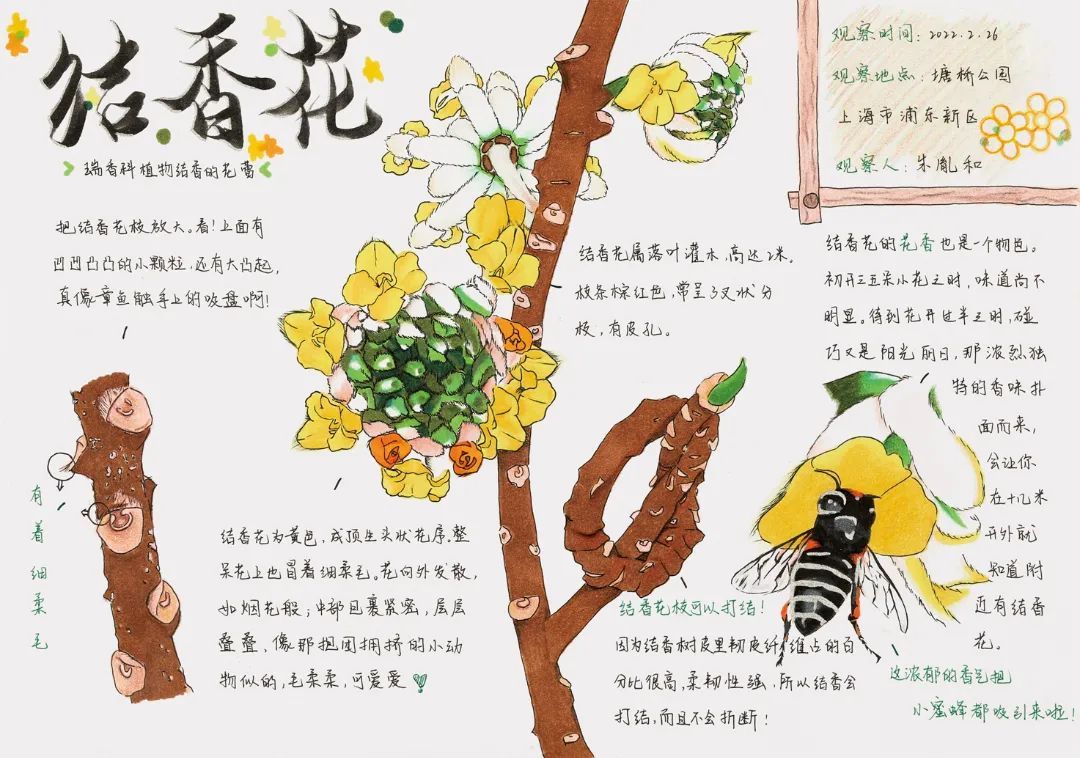 结香花
瑞香科植物结香的花蕾
观察时间：2022.2.26
观察地点：塘桥公园
上海市浦东新区
观察人：朱胤和
把结香花枝放大。看！上面有
凹凹凸凸的小颗粒，还有大凸起，
真像章鱼触手上的吸盘啊！
有着细柔毛
结香花为黄色，成顶生头状花序。整
朵花上也冒着细柔毛。花向外发散，
如烟花般；中部包裹紧密，层层
叠叠，像那抱团拥挤的小动
物似的，毛柔柔，可爱爱
结香花属落叶灌木，高达2米。
枝条棕红色，常呈3叉状分
枝，有皮孔。
结香花枝可以打结！
因为结香树皮里韧皮纤维占的百
分比很高，柔韧性强，所以结香会
打结，而且不会折断！
结香花的花香也是一个特色。
初开三五朵小花之时，味道尚不
明显。待到花开过半之时，碰
巧又是阳光丽日，那浓烈独
特的香味扑
面而来，
会让你
在十几米
开外就
知道附
近有结香
花。
这浓郁的香气把
小蜜蜂都吸引来啦！